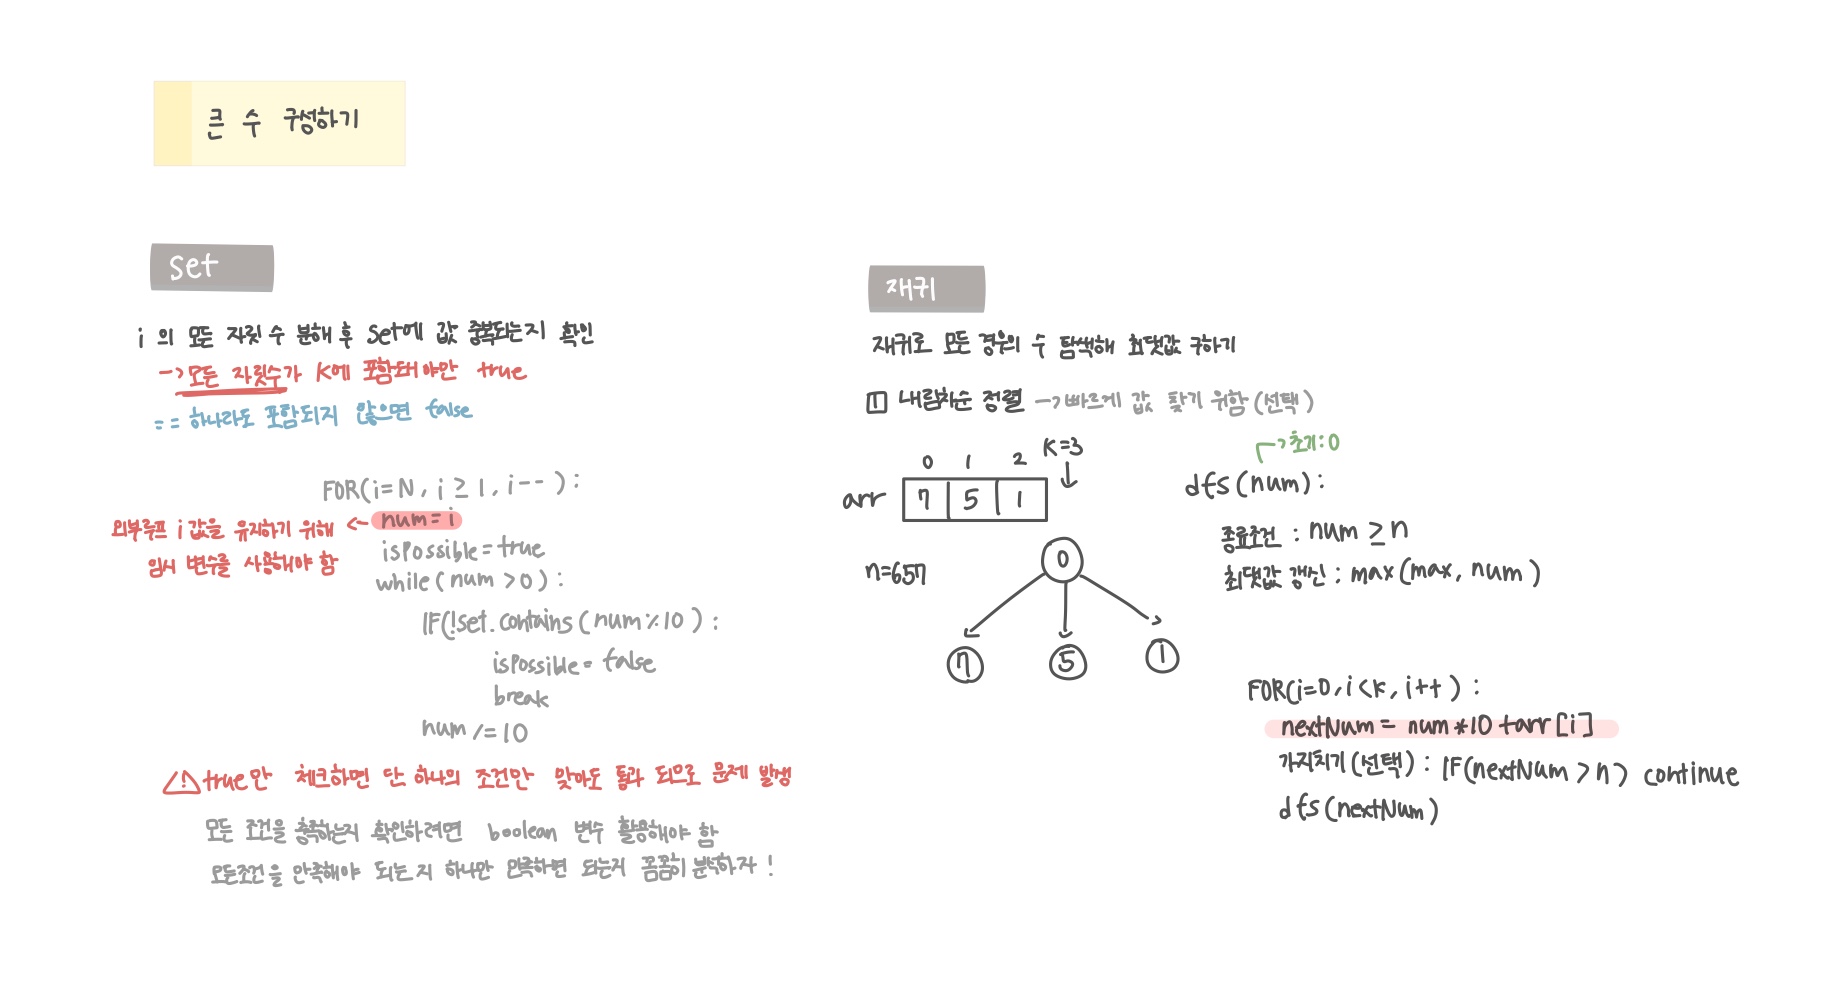 큰 수 구성하기
set
i 의 모든 자릿수 분해 후 set에 값 중복되는지 확인
-> 모든 자릿수가 K에 포함돼야만 true
== 하나라도 포함되지 않으면 false
FOR(i=N, i ≥ 1, i--):
num=i
외부루프 i 값을 유지하기 위해 <-
임시 변수를 사용해야 함
isPossible=true
while(num >0):
IF(!set.contains(num%10):
isPossible= false
break
num /=10
⚠ true만 체크하면 단 하나의 조건만 맞아도 통과 되므로 문제 발생
모든 조건을 충족하는지 확인하려면 boolean 변수 활용해야 함
모든조건을 만족해야 되는지 하나만 만족하면 되는지 꼼꼼히 분석하자!
재귀
재귀로 모든 경우의 수 탐색해 최댓값 구하기
1 내림차순 정렬 -> 빠르게 값 찾기 위함(선택)
0 1 2 K=3
arr 7 5 1
n=657
0
7 5 1
->초기:0
dfs(num):
종료조건 : num ≥ n
최댓값 갱신 : max(max, num)
FOR(i=0, i<K, i++):
nextNum = num*10 +arr[i]
가지치기(선택) : IF(nextNum > n) continue
dfs(nextNum)